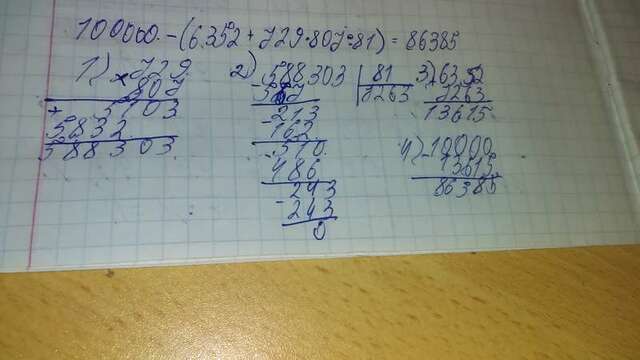 100000-(6352+729·807:81)=86385
1) ×729
807
+ 5103
5832
588303
2) 588303 | 81
7263
-567
-213
162
-510
486
-243
-243
0
3) 6352
7263
13615
4) -10000
13615
86385